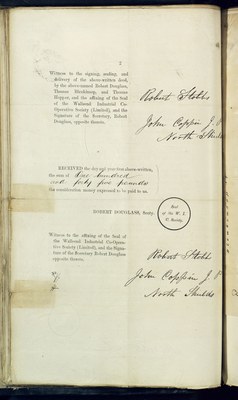 2
Witness to the signing, sealing, and
delivery of the above-written deed,
by the above-named Robert Douglass,
Thomas and Thomas
Hopper, and the affixing of the Seal
of the Wallsend Industrial Co-
Operative Society (Limited), and the
Signature of the Secretary, Robert
Douglass, opposite thereto.
Robert Stobbs
John Coppin J. P
North Shields
RECEIVED the day and year first above-written,
the sum of One hundred
and forty five pounds
the consideration money expressed to be paid to us.
ROBERT DOUGLASS, Secty.
Seal
of the W. I.
C. Society.
Witness to the affixing of the Seal of
the Wallsend Industrial Co-Opera-
tive Society (Limited), and the Signa-
ture of the Secretary Robert Douglass
opposite thereto.
Robert Stobbs
John Coppin J. P
North Shields